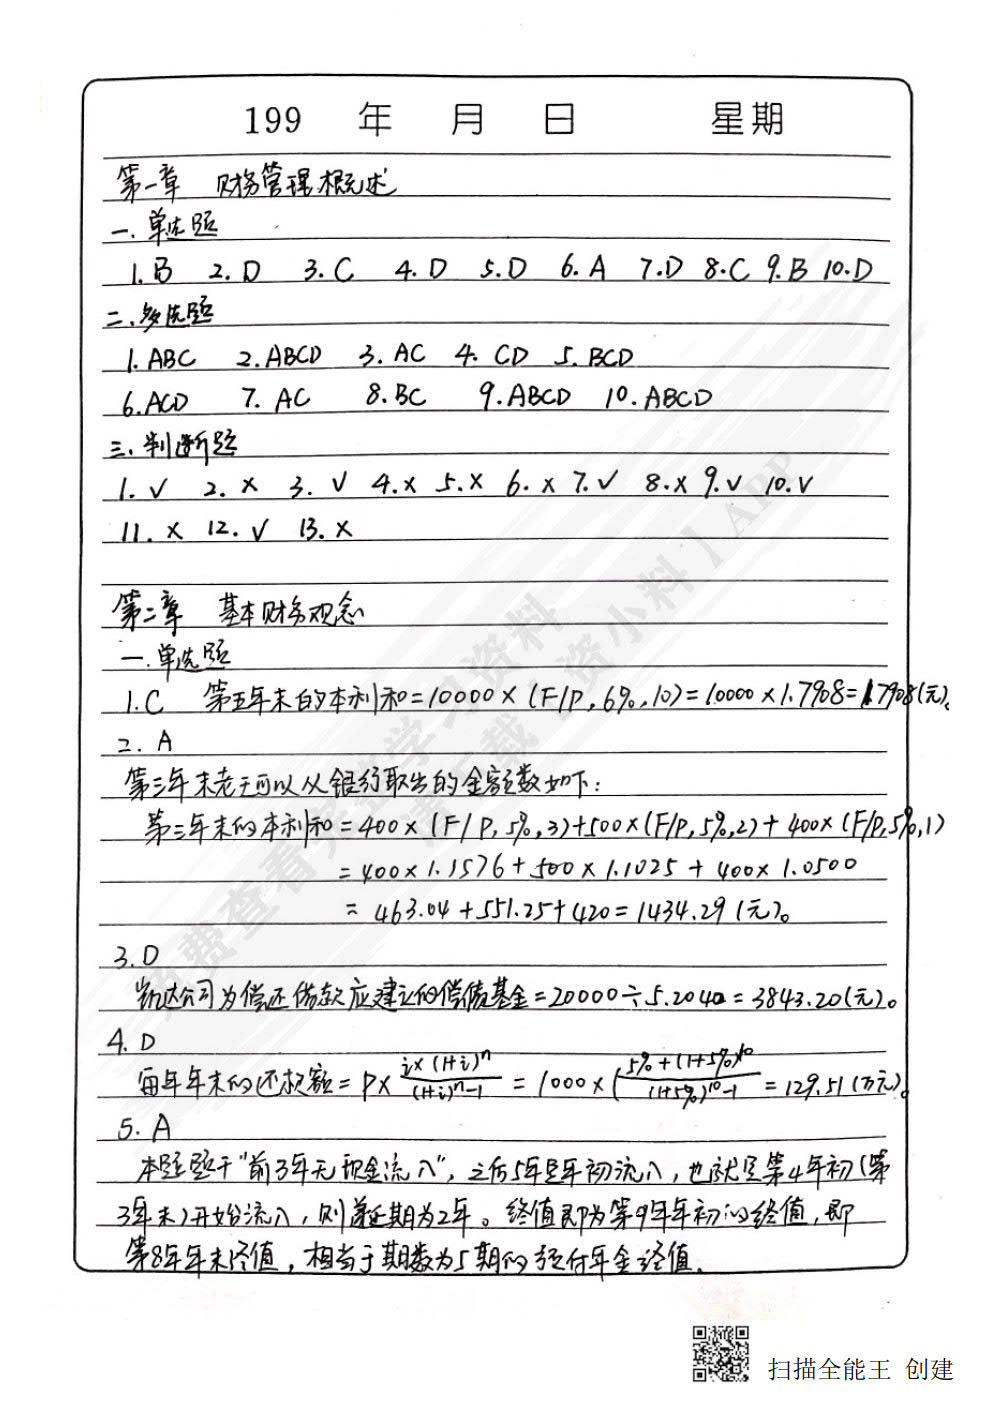 199 年 月 日 星期
第一章 财务管理概述
一.单选题
1.B 2.D 3.C 4.D 5.D 6.A 7.D 8.C 9.B 10.D
二.多选题
1.ABC 2.ABCD 3.AC 4.CD 5.BCD
6.ACD 7.AC 8.BC 9.ABCD 10.ABCD
三.判断题
1.√ 2.× 3.√ 4.× 5.× 6.× 7.√ 8.× 9.√ 10.√
11.× 12.√ 13.×
第二章 基本财务观念
一.单选题
1.C 第五年末的本利和=10000×(F/P,6%,10)=10000×1.7908=17908(元)。
2.A
第三年末老王可以从银行取出的金额数如下:
第三年末的本利和=400×(F/P,5%,3)+500×(F/P,5%,2)+400×(F/P,5%,1)
=400×1.1576+500×1.1025+400×1.0500
=463.04+551.25+420=1434.29(元)。
3.D
凯达公司为偿还借款应建立的偿债基金=20000÷5.2040=3843.20(元)。
4.D
每年年末的还款额=P×i×(1+i)^n/(1+i)^n-1=1000×(5%+(1+5%)^10/(1+5%)^10-1=129.51(万元)。
5.A
本题题干"前3年无现金流入",之后5年是年初流入,也就是第4年初(第
3年末)开始流入,则递延期为2年。终值即为第9年年初的终值,即
第8年年末终值,相当于期数为5期的预付年金终值。
免费查看完整学习资料
请下载【资小料】APP
扫描全能王 创建